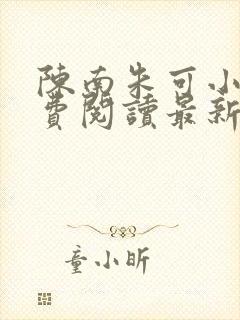 陳南朱可小
費閱讀最新
童小昕